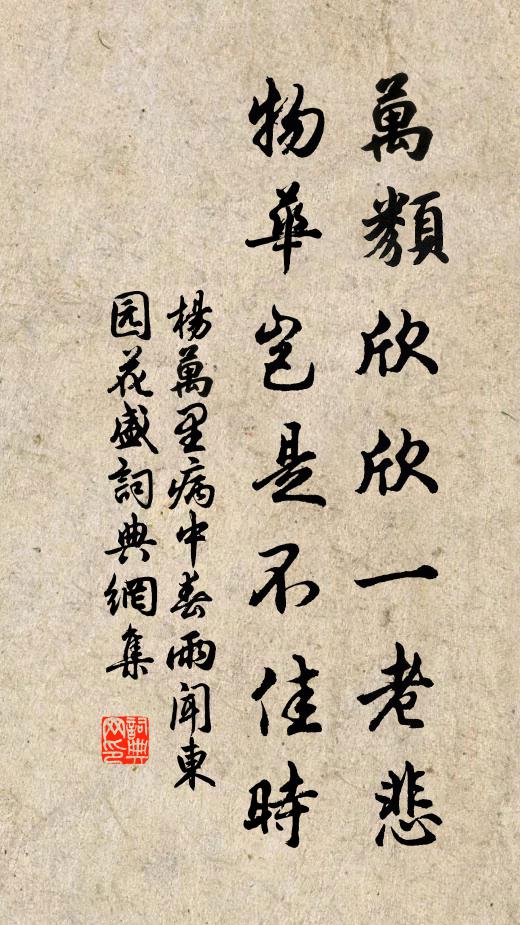 萬類欣欣一老悲
物華豈是不佳時
楊萬里病中春雨聞東
园花盛詞典網集
詞典
网印